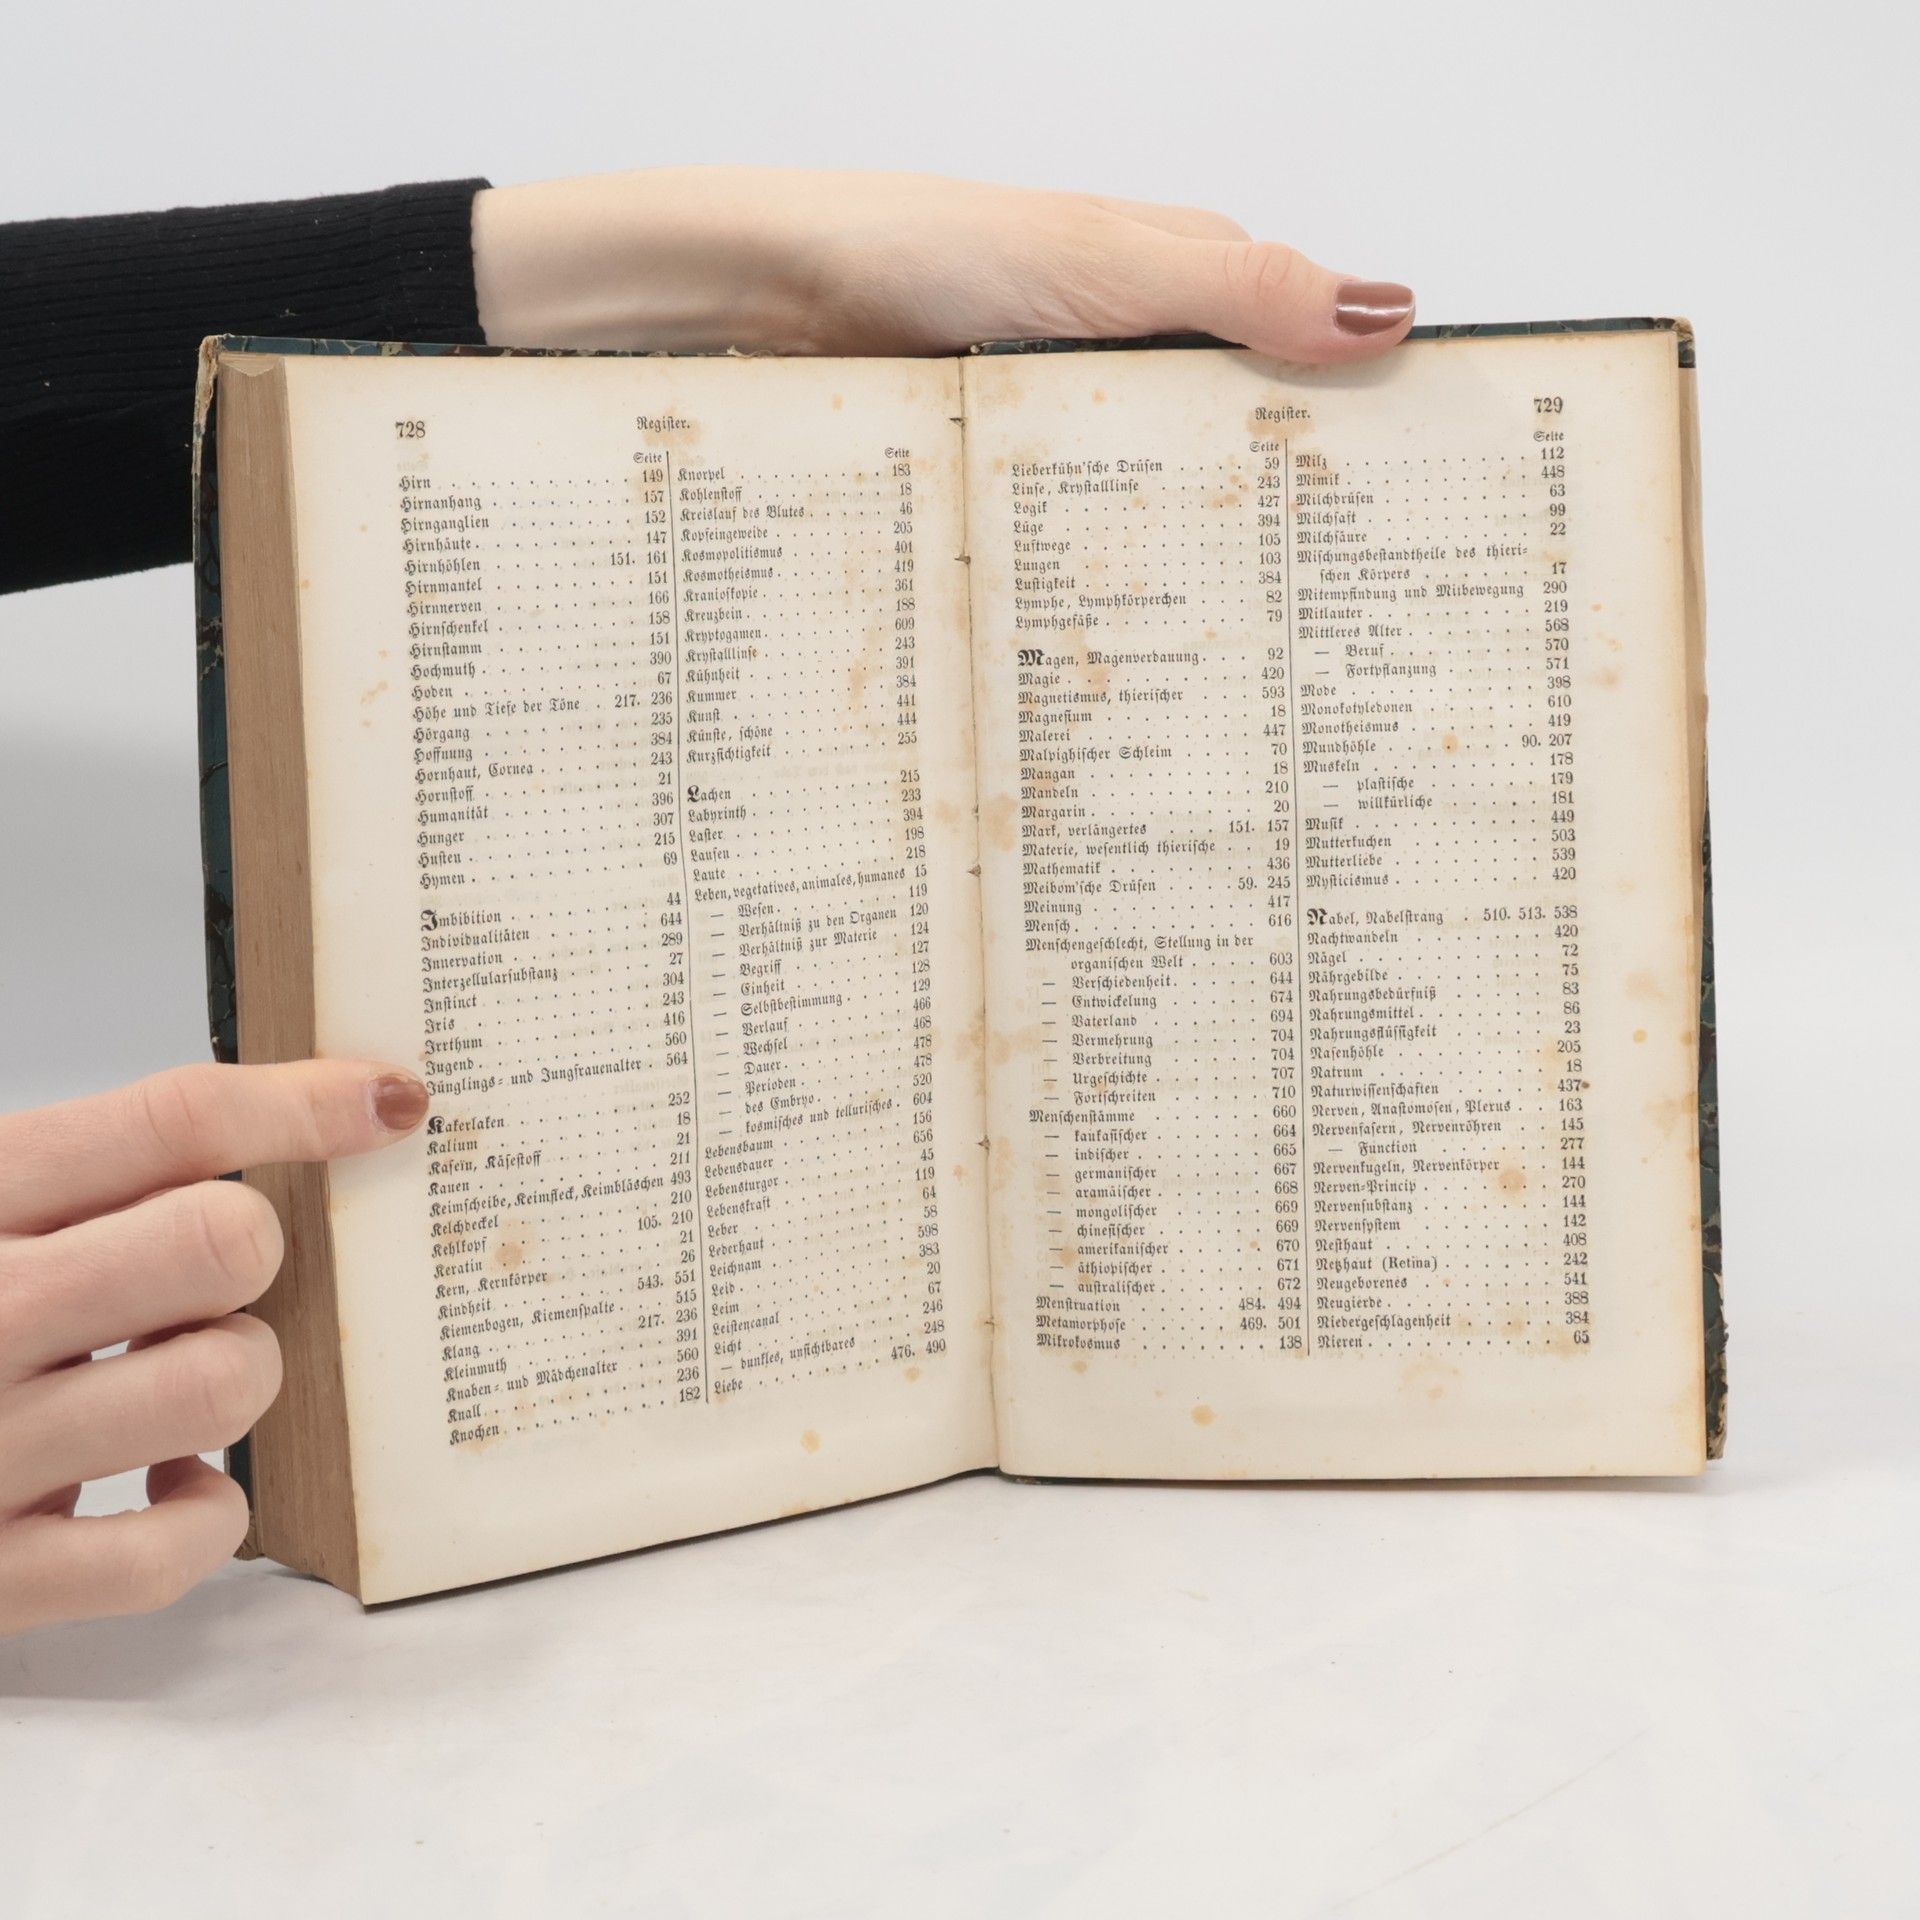 728
Register.
Seite
Hirn . . . . . . . . . . 149
Hirnanhang . . . . . . . . 157
Hirnganglien . . . . . . . 152
Hirnhäute . . . . . . . . 147
Hirnhöhlen . . . . . . 151. 161
Hirnmantel . . . . . . . . 151
Hirnnerven . . . . . . . . 166
Hirnschenkel . . . . . . . 158
Hirnstamm . . . . . . . . 151
Hochmuth . . . . . . . . . 390
Hoden . . . . . . . . . . 67
Höhe und Tiefe der Töne . 217. 236
Hörgang . . . . . . . . . 235
Hoffnung . . . . . . . . . 384
Hornhaut, Cornea . . . . . . 243
Hornstoff . . . . . . . . . 21
Humanität . . . . . . . . 396
Hunger . . . . . . . . . 307
Husten . . . . . . . . . . 215
Hymen . . . . . . . . . . 69
Imbibition . . . . . . . . 44
Individualitäten . . . . . . 644
Innervation . . . . . . . . 289
Interzellularsubstanz . . . . . 27
Instinct . . . . . . . . . 304
Iris . . . . . . . . . . 243
Irrthum . . . . . . . . . 416
Jugend . . . . . . . . . . 560
Jünglings- und Jungfrauenalter . 564
Kakerlaken . . . . . . . . 252
Kalium . . . . . . . . . 18
Kasein, Käsestoff . . . . . . 21
Kauen . . . . . . . . . . 211
Keimscheibe, Keimfleck, Keimbläschen 493
Kelchdeckel . . . . . . . . 210
Kehlkopf . . . . . . . 105. 210
Keratin . . . . . . . . . 21
Kern, Kernkörper . . . . . . 26
Kindheit . . . . . . . 543. 551
Kiemenbogen, Kiemenspalte . . . 515
Klang . . . . . . . . 217. 236
Kleinmuth . . . . . . . . 391
Knaben- und Mädchenalter . . . 560
Knall . . . . . . . . . . 236
Knochen . . . . . . . . . 182
Seite
Knorpel . . . . . . . . . 183
Kohlenstoff . . . . . . . . 18
Kreislauf des Blutes . . . . . 46
Kopfeingeweide . . . . . . . 205
Kosmopolitismus . . . . . . 401
Kosmotheismus . . . . . . . 419
Kranioskopie . . . . . . . . 361
Kreuzbein . . . . . . . . . 188
Kryptogamen . . . . . . . . 609
Krystalllinse . . . . . . . . 243
Kühnheit . . . . . . . . . 391
Kummer . . . . . . . . . 384
Kunst . . . . . . . . . . 441
Künste, schöne . . . . . . . 444
Kurzsichtigkeit . . . . . . . 255
Lachen . . . . . . . . . 215
Labyrinth . . . . . . . . . 233
Laster . . . . . . . . . . 394
Laufen . . . . . . . . . . 198
Laute . . . . . . . . . . 218
Leben, vegetatives, animales, humanes 15
— Wesen . . . . . . . . 119
— Verhältniß zu den Organen 120
— Verhältniß zur Materie . 124
— Begriff . . . . . . . 127
— Einheit . . . . . . . 128
— Selbstbestimmung . . . . 129
— Verlauf . . . . . . . 466
— Wechsel . . . . . . . 468
— Dauer . . . . . . . . 478
— Perioden . . . . . . . 478
— des Embryo . . . . . . 520
— kosmisches und tellurisches . 604
Lebensbaum . . . . . . . . 156
Lebensdauer . . . . . . . . 656
Lebensturgor . . . . . . . . 45
Lebenskraft . . . . . . . . 119
Leber . . . . . . . . . . 64
Lederhaut . . . . . . . . . 58
Leichnam . . . . . . . . . 598
Leid . . . . . . . . . . . 383
Leim . . . . . . . . . . 20
Leistencanal . . . . . . . . 67
Licht . . . . . . . . . . 246
— dunkles, unsichtbares . . . 248
Liebe . . . . . . . . 476. 490
729
Register.
Seite
Lieberkühn'sche Drüsen . . . . 59
Linse, Krystalllinse . . . . . 243
Logik . . . . . . . . . . 427
Lüge . . . . . . . . . . 394
Luftwege . . . . . . . . . 105
Lungen . . . . . . . . . 103
Lustigkeit . . . . . . . . . 384
Lymphe, Lymphkörperchen . . . 82
Lymphgefäße . . . . . . . . 79
Magen, Magenverdauung . . . 92
Magie . . . . . . . . . . 420
Magnetismus, thierischer . . . 593
Magnesium . . . . . . . . 18
Malerei . . . . . . . . . 447
Malpighischer Schleim . . . . 70
Mangan . . . . . . . . . 18
Mandeln . . . . . . . . . 210
Margarin . . . . . . . . . 20
Mark, verlängertes . . . 151. 157
Materie, wesentlich thierische . . 19
Mathematik . . . . . . . . 436
Meibom'sche Drüsen . . . . 59. 245
Meinung . . . . . . . . . 417
Mensch . . . . . . . . . . 616
Menschengeschlecht, Stellung in der
organischen Welt . . . . 603
— Verschiedenheit . . . . . 644
— Entwickelung . . . . . 674
— Vaterland . . . . . . 694
— Vermehrung . . . . . 704
— Verbreitung . . . . . 704
— Urgeschichte . . . . . . 707
— Fortschreiten . . . . . 710
Menschenstämme . . . . . . 660
— kaukasischer . . . . . . 664
— indischer . . . . . . . 665
— germanischer . . . . . 667
— aramäischer . . . . . . 668
— mongolischer . . . . . 669
— chinesischer . . . . . . 669
— amerikanischer . . . . . 670
— äthiopischer . . . . . . 671
— australischer . . . . . . 672
Menstruation . . . . . 484. 494
Metamorphose . . . . . 469. 501
Mikrokosmus . . . . . . . 138
Seite
Milz . . . . . . . . . . 112
Mimik . . . . . . . . . . 448
Milchdrüsen . . . . . . . . 63
Milchsaft . . . . . . . . . 99
Milchsäure . . . . . . . . 22
Mischungsbestandtheile des thieri-
schen Körpers . . . . . . 17
Mitempfindung und Mitbewegung 290
Mitlauter . . . . . . . . . 219
Mittleres Alter . . . . . . . 568
— Beruf . . . . . . . . 570
— Fortpflanzung . . . . . 571
Mode . . . . . . . . . . 398
Monokotyledonen . . . . . . 610
Monotheismus . . . . . . . 419
Mundhöhle . . . . . . . 90. 207
Muskeln . . . . . . . . . 178
— plastische . . . . . . 179
— willkürliche . . . . . 181
Musik . . . . . . . . . . 449
Mutterkuchen . . . . . . . 503
Mutterliebe . . . . . . . . 539
Mysticismus . . . . . . . . 420
Nabel, Nabelstrang . 510. 513. 538
Nachtwandeln . . . . . . . 420
Nägel . . . . . . . . . . 72
Nährgebilde . . . . . . . . 75
Nahrungsbedürfniß . . . . . 83
Nahrungsmittel . . . . . . . 86
Nahrungsflüssigkeit . . . . . 23
Nasenhöhle . . . . . . . . 205
Natrum . . . . . . . . . 18
Naturwissenschaften . . . . . 437
Nerven, Anastomosen, Plexus . . 163
Nervenfasern, Nervenröhren . . 145
— Function . . . . . . 277
Nervenkugeln, Nervenkörper . . 144
Nerven-Princip . . . . . . . 270
Nervensubstanz . . . . . . . 144
Nervensystem . . . . . . . 142
Nesthaut . . . . . . . . . 408
Netzhaut (Retina) . . . . . . 242
Neugeborenes . . . . . . . 541
Neugierde . . . . . . . . . 388
Niedergeschlagenheit . . . . . 384
Nieren . . . . . . . . . . 65